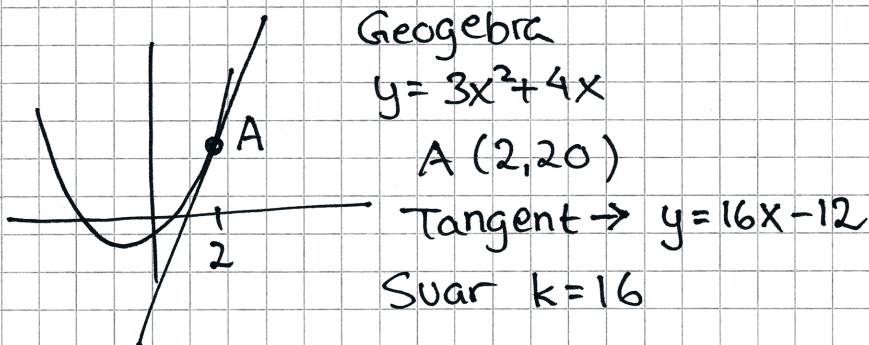 Geogebra
y = 3x² + 4x
A
A (2,20)
Tangent → y = 16x - 12
2
Svar k = 16